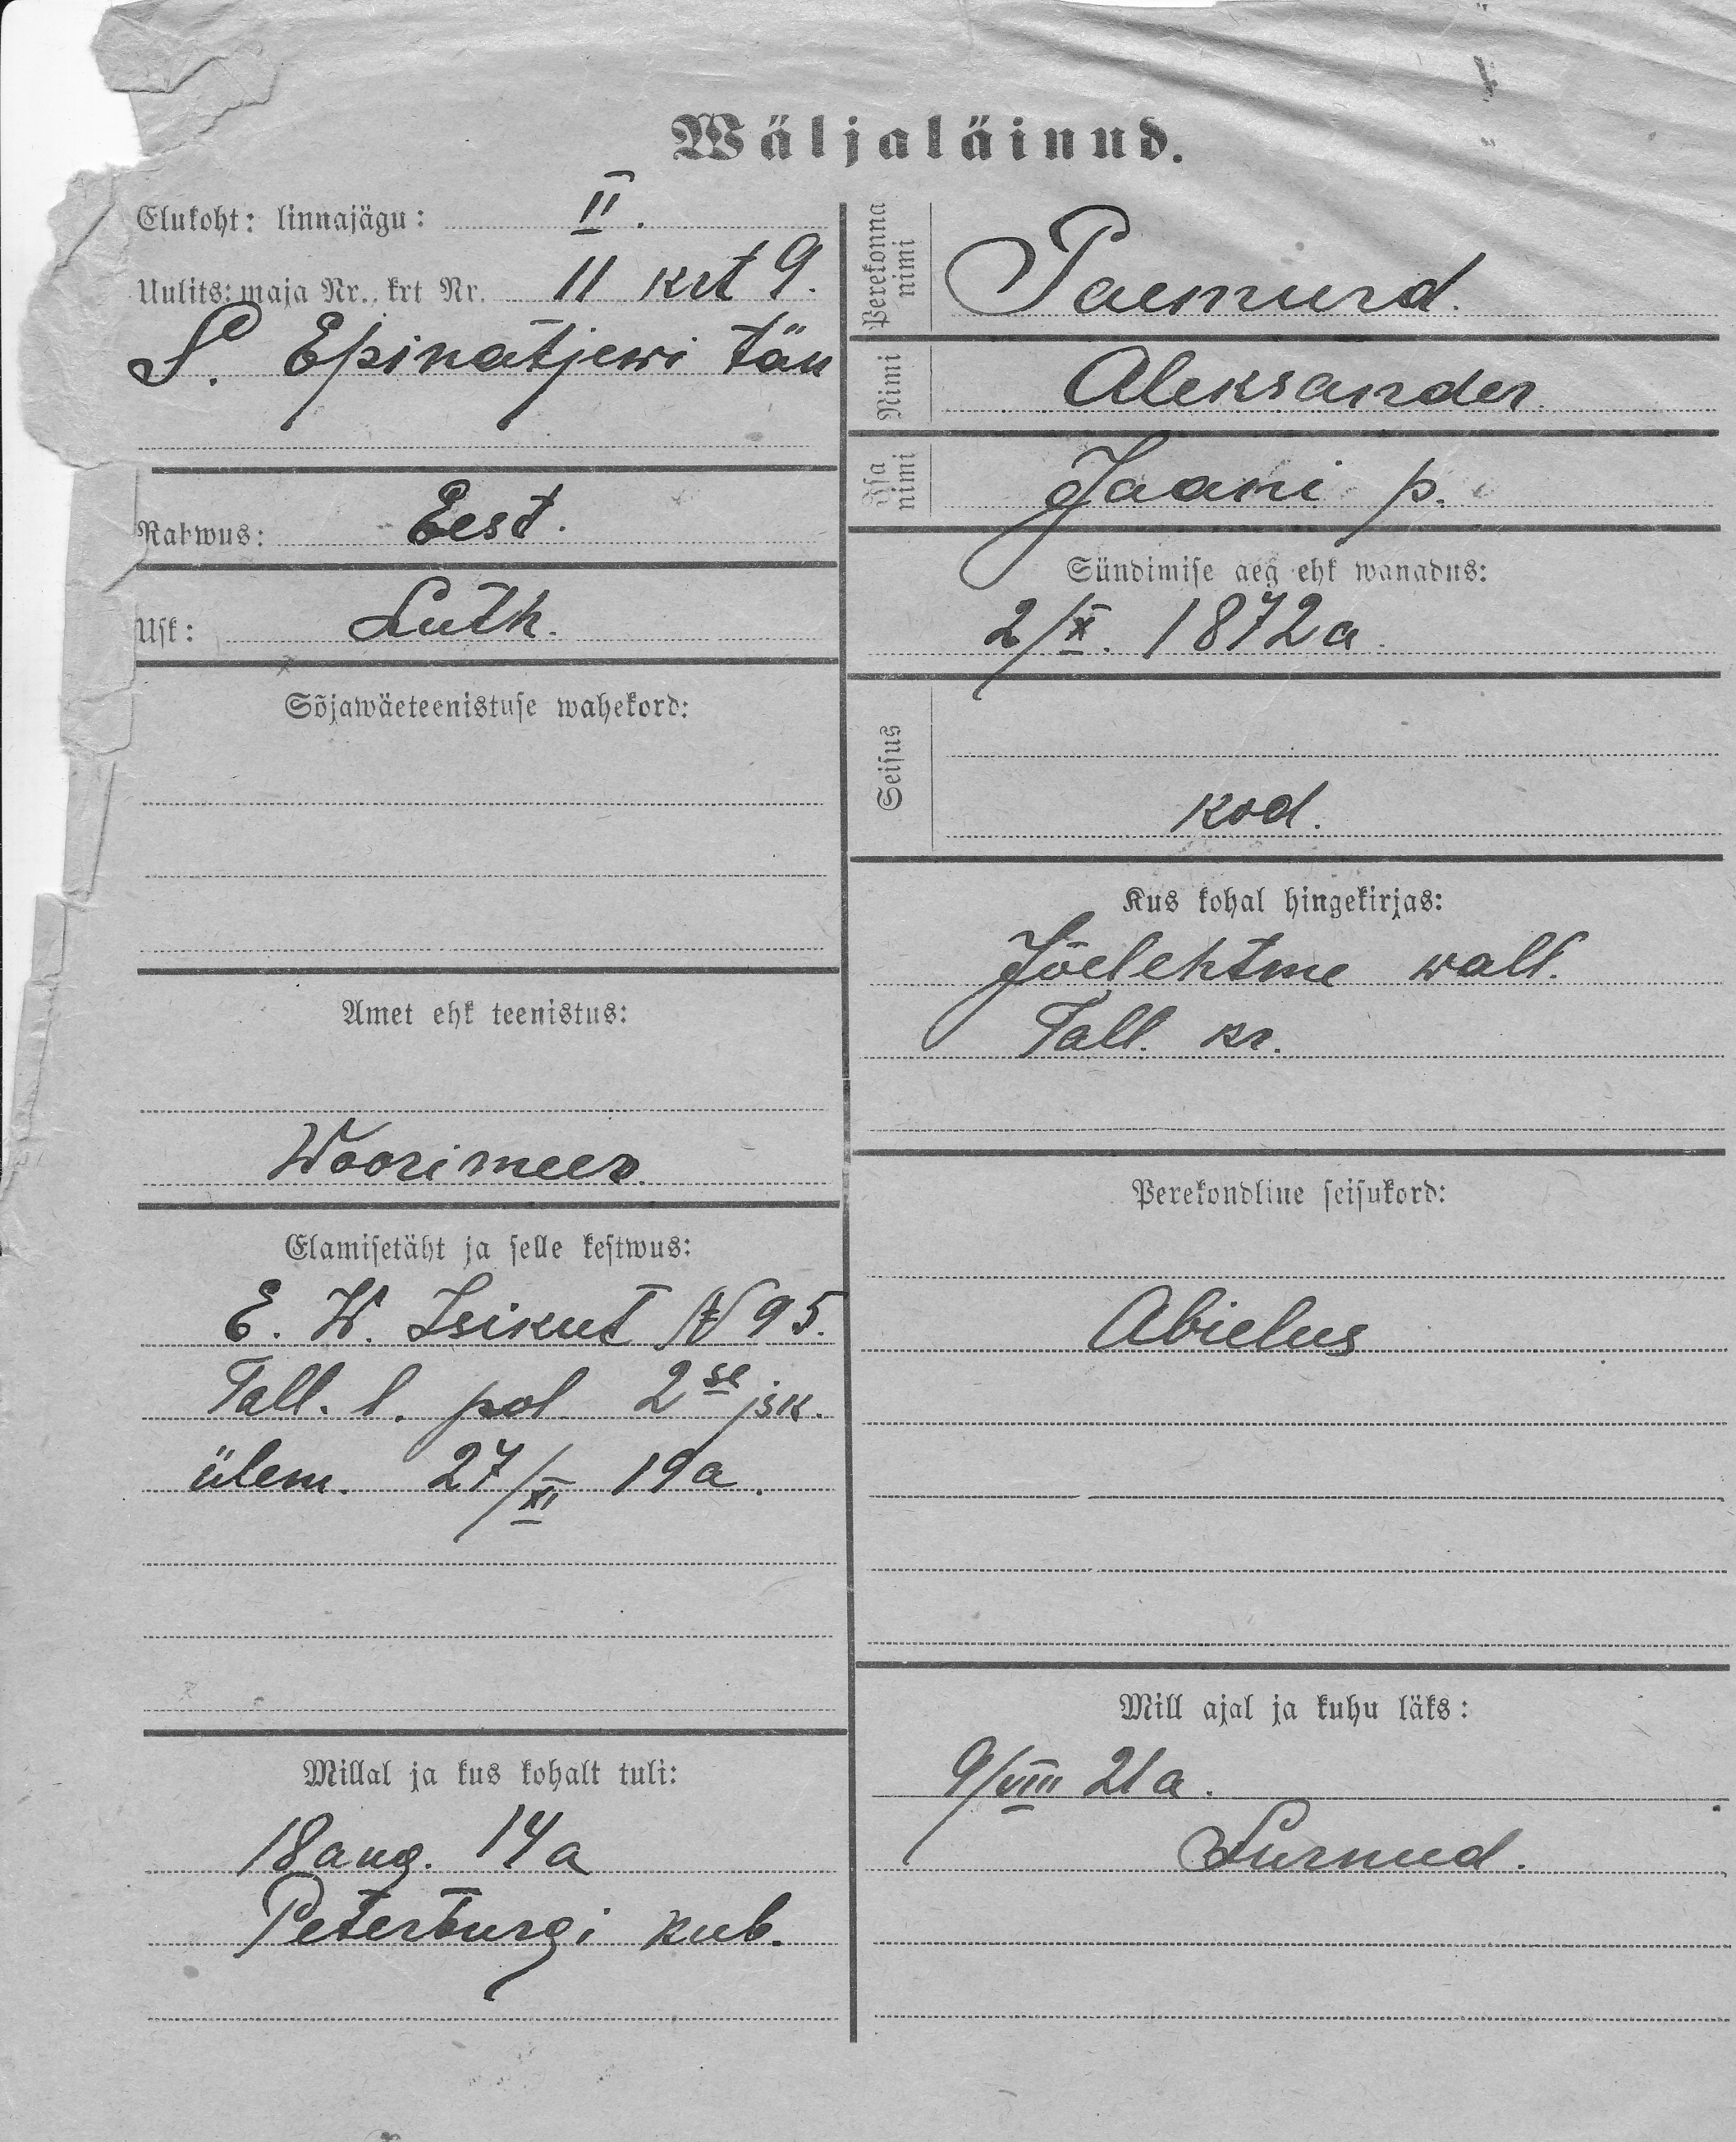 Wäljaläinud.
Elukoht: linnajägu: II.
Uulits: maja Nr., krt Nr. 11 krt 9.
S. Epinatjewi tän
Rahwus: Eest.
Usk: Luth.
Sõjawäeteenistuse wahekord:
Amet ehk teenistus:
Woorimees.
Elamisetäht ja selle kestwus:
E. W. Isikut № 95.
Tall. l. pol. 2se jsk.
ülem. 27/XI 19a.
Millal ja kus kohalt tuli:
18 aug. 14a
Peterburgi kub.
Perekonna nimi
Paemurd.
Nimi
Aleksander.
Isa nimi
Jaani p.
Sündimise aeg ehk wanadus:
2/X. 1872a.
Seisus
kod.
Kus kohal hingekirjas:
Jõelehtme wall.
Tall. kr.
Perekondline seisukord:
Abielus
Mill ajal ja kuhu läks:
9/VIII 21a.
Surnud.